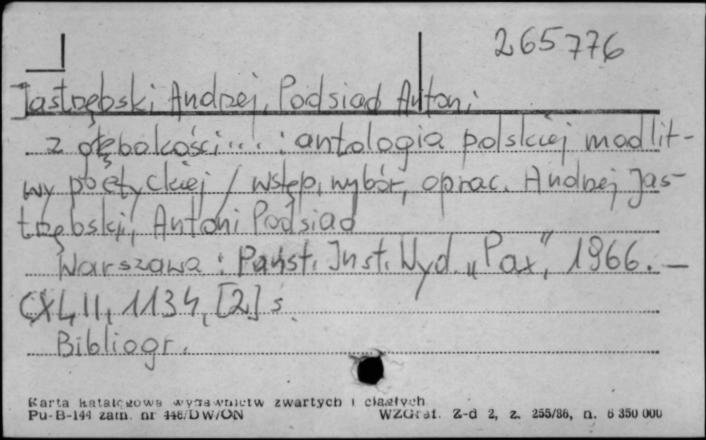 265776
Jastrzębski Andrzej, Podsiad Antoni
z głębokości... : antologia polskiej modlit-
wy poetyckiej / wstęp, wybór, oprac. Andrzej Jas-
trzębski, Antoni Podsiad
Warszawa : Państ. Inst. Wyd. „Pax”, 1966. —
CXLII, 1134, [2] s.
Bibliogr.
Karta katalogowa wydawnictw zwartych i ciągłych
Pu-B-144 zam. nr 446/DW/ON WZGraf. Z-d 2, z. 255/86, n. 6 350 000